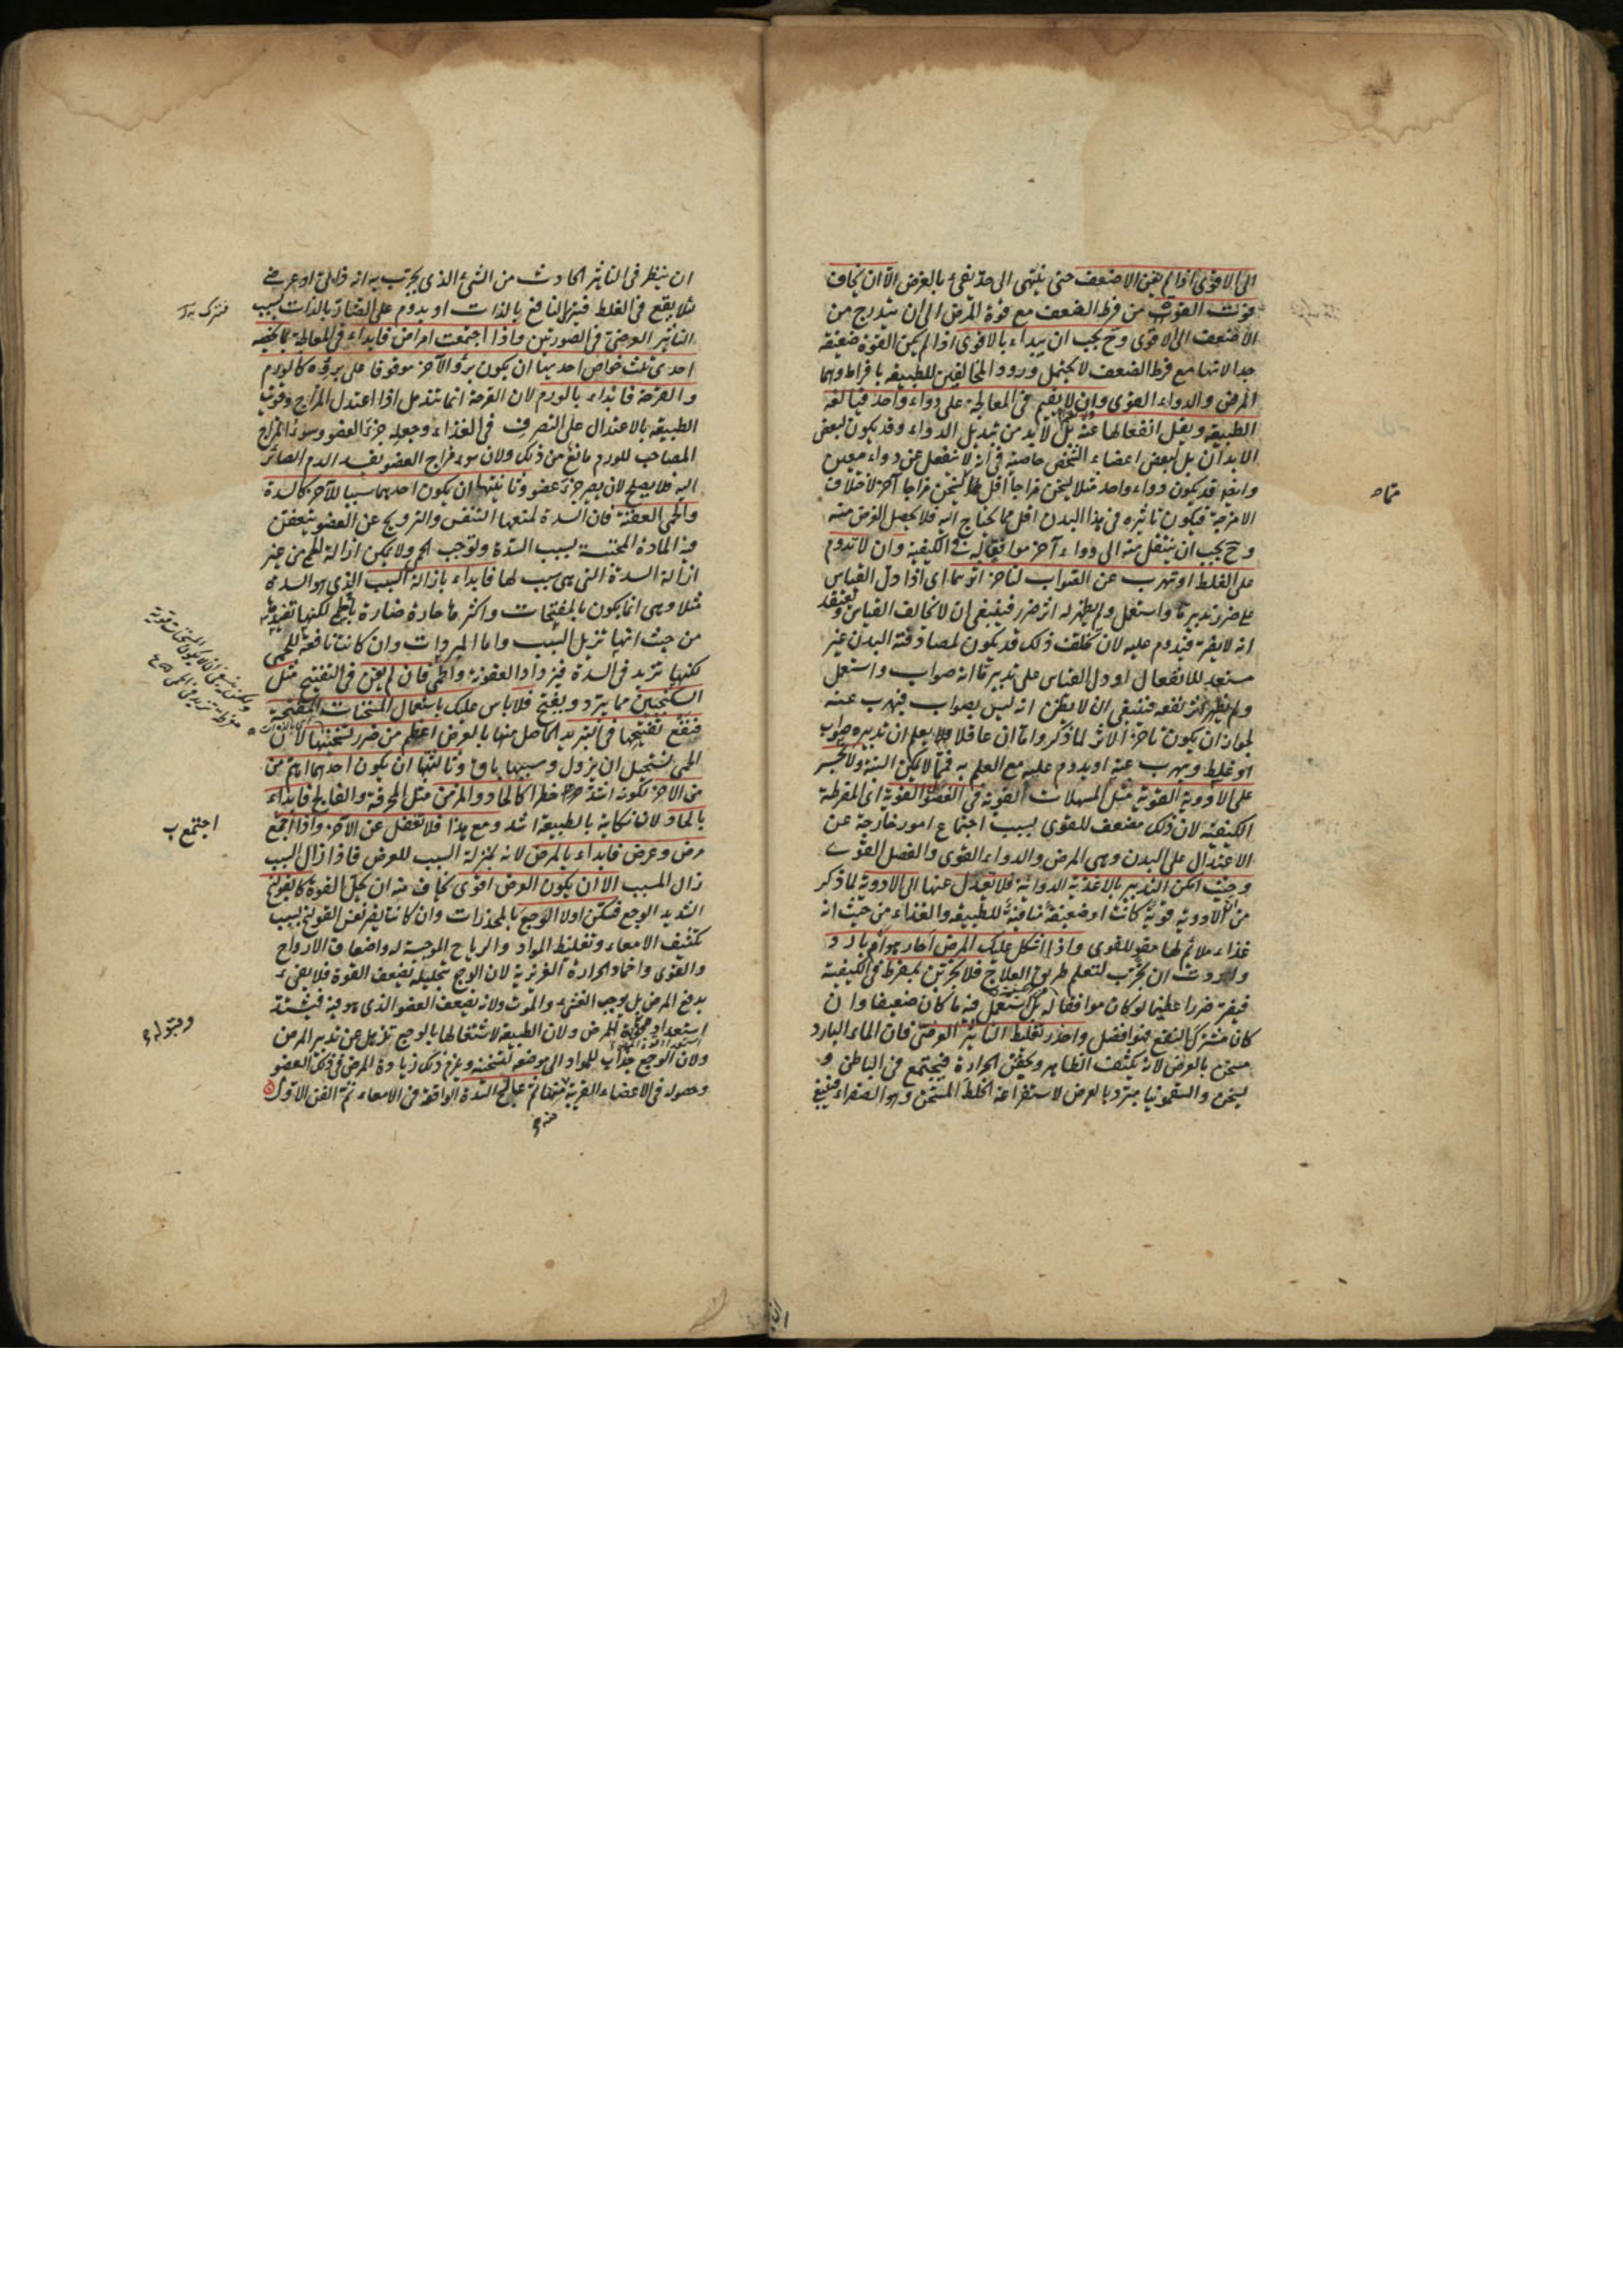 الى الاقوى اذا لم يغن الاضعف حتى ينتهى الى حد يفى بالغرض الا ان يخاف
فوت القوة من فرط الضعف مع قوة المرض الى ان يتدرج من
الاضعف الى الاقوى وح يجب ان يبداء بالاقوى اذا لم يكن القوة ضعيفة
جدا لانها مع فرط الضعف لا يحتمل ورود المخالفين للطبيعة بافراط وهما
المرض والدواء القوى وان لا يقيم فى المعالجة على دواء واحد فيألفه
الطبيعة ويقل انفعالها عنه بل لا بد من تبديل الدواء وقد يكون لبعض
الابدان بل لبعض اعضاء الشخص خاصية فى انه لا ينفعل عن دواء معين
وايضا قد يكون دواء واحد مثلا يسخن مزاجا اقل مما يسخن مزاجا آخر لاختلاف
الامزجة فيكون تاثيره فى هذا البدن اقل مما يحتاج اليه فلا يحصل الغرض منه
وح يجب ان ينتقل منه الى دواء آخر موافق له فى الكيفية وان لا تدوم
على الغلط او تهرب عن الصواب لتاخر اثرهما اى اذا دل القياس
على ضرر تدبير ما واستعمل ولم يظهر له اثر ضرر فينبغى ان لا يخالف القياس و تعتقد
انه لا يضر فيدوم عليه لان تخلف ذلك قد يكون لمصادفة البدن غير
مستعد للانفعال او دل القياس على تدبير ما انه صواب واستعمل
ولم يظهر اثر نفعه فينبغى ان لا يظن انه ليس بصواب فيهرب عنه
لجواز ان يكون تاخر الاثر لما ذكر واما ان عاقلا يعلم ان تدبيره صواب
او غلط ويهرب عنه او يدوم عليه مع العلم به فمما لا يمكن البتة ولا تجسر
على الادوية القوية مثل المسهلات القوية فى الفصول القوية اى المفرطة
الكيفية لان ذلك مضعف للقوى بسبب اجتماع امور خارجة عن
الاعتدال على البدن وهى المرض والدواء القوى والفصل القوى
وحيث امكن التدبير بالاغذية الدوائية فلا تعدل عنها الى الادوية لما ذكر
من ان الادوية قوية كانت او ضعيفة منافية للطبيعة والغذاء من حيث انه
غذاء ملائم لها مقو للقوى واذا اشكل عليك المرض احار هو ام بارد
واردت ان تجرب لتعلم طريق العلاج فلا تجربن بمفرط فى الكيفية
فيضر ضررا عظيما لو كان موافقا له بل استعمل فيه ما كان ضعيفا وان
كان مشترك النفع فهو افضل واحذر تغليط التاثير العرضى فان الماء البارد
مسخن بالعرض لانه يكثف الظاهر ويحقن الحرارة فيجتمع فى الباطن و
يسخن والسقمونيا مبرد بالعرض لاستفراغه الخلط المسخن وهو الصفراء فينبغى
ان ينظر فى التاثير الحادث من الشئ الذى يجرب به انه ذاتى او عرضى
لئلا يقع فى الغلط فيترك النافع بالذات او يدوم على الضار بالذات بسبب
التاثير العرضى فى الصورتين واذا اجتمعت امراض فابداء فى المعالجة بما يخصه
احدى ثلث خواص احديها ان يكون برؤ الآخر موقوفا على برؤه كالورم
والقرحة فابداء بالورم لان القرحة انما تندمل اذا اعتدل المزاج وقويت
الطبيعة بالاعتدال على التصرف فى الغذاء وجعله جزء العضو وسوء المزاج
المصاحب للورم مانع من ذلك ولان سوء مزاج العضو يفسد الدم الصائر
اليه فلا يصلح لان يصير جزء عضو وثانيتها ان يكون احدهما سببا للآخر كالسدة
والحمى العفنة فان السدة لمنعها التنفس والترويح عن العضو يتعفن
فيه المادة المحتبسة بسبب السدة وتوجب الحمى ولا يمكن ازالة الحمى من غير
ازالة السدة التى هى سبب لها فابداء بازالة السبب الذى هو السدة
مثلا وهى انما يكون بالمفتحات واكثرها حادة ضارة بالحمى لكنها تفيدها
من حيث انها تزيل السبب واما المبردات وان كانت نافعة للحمى
لكنها تزيد فى السدة فيزداد العفونة والحمى فان لم يغن فى التفتيح مثل
السكنجبين مما يبرد ويفتح فلا باس عليك باستعمال المسخنات المفتحة
فنفع تفتيحها فى التبريد الحاصل منها بالعرض اعظم من ضرر تسخينها لان
الحمى يستحيل ان يزول وسببها باق وثالثتها ان يكون احدهما اهم من
من الآخر لكونه اشد خطرا كالحاد والمزمن مثل المحرقة والفالج فابداء
بالحاد لان نكايته بالطبيعة اشد ومع هذا فلا تغفل عن الآخر واذا اجتمع
مرض وعرض فابداء بالمرض لانه بمنزلة السبب للعرض فاذا زال السبب
زال المسبب الا ان يكون العرض اقوى يخاف منه ان يحل القوة كالقولنج
الشديد الوجع فسكن اولا الوجع بالمخدرات وان كانت يضر نفس القولنج بسبب
تكثيف الامعاء وتغليظ المواد والرياح الموجبة له واضعاف الارواح
والقوى واخماد الحرارة الغريزية لان الوجع بتحليله يضعف القوة فلا يفى
بدفع المرض بل يوجب الغشى والموت ولانه يضعف العضو الذى هو فيه فيشتد
استعداده لقبول المرض ولان الطبيعة لاشتغالها بالوجع تذهل عن تدبير المرض
ولان الوجع جذاب للمواد الى موضعه لتسخينه ويلزم ذلك زيادة المرض فى ذلك العضو
وحصوله فى الاعضاء القريبة منه ثم عالج السدة الواقعة فى الامعاء تم الفن الاول
اجتمع ب